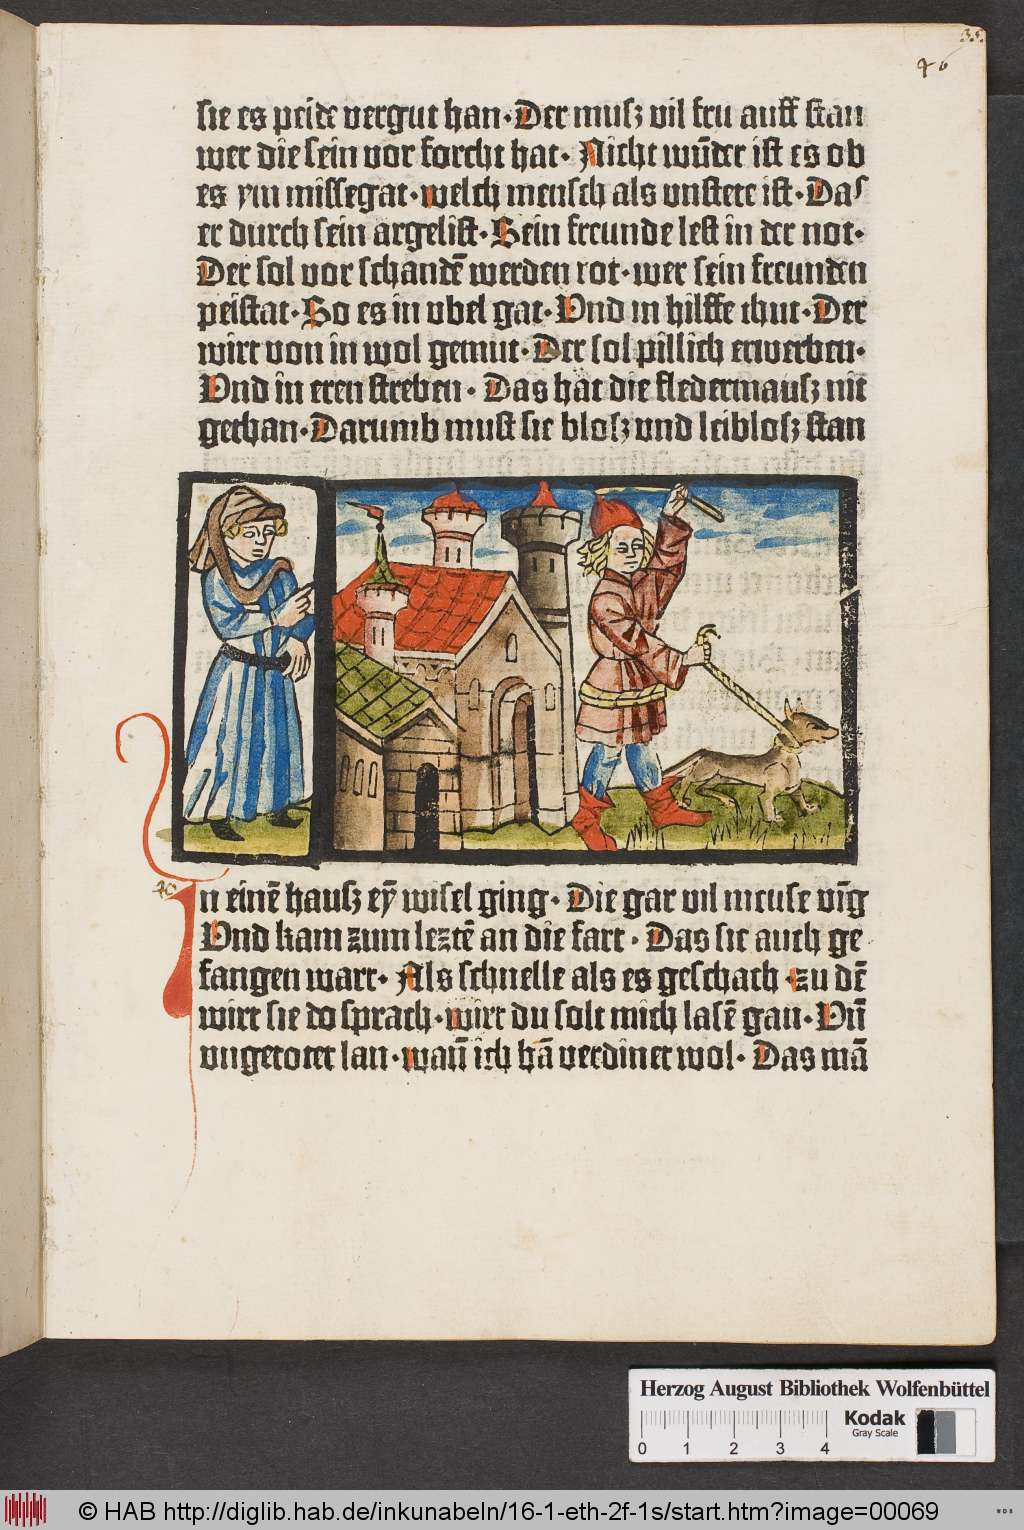 35.
40
sie es peide vergut han · Der musz vil fru auff stan
wer die sein vor forcht hat · Nicht wūder ist es ob
es ym missegat · welch mensch als vnstete ist · Das
er durch sein argelist · Sein freunde lest in der not ·
Der sol vor schandē werden rot · wer sein freunden
peistat · So es in vbel gat · Vnd in hilffe thut · Der
wirt von in wol gemut · Der sol pillich erwerben ·
Vnd in eren streben · Das hat die fledermausz nit
gethan · Darumb must sie blosz vnd leiblosz stan
40
In einē hausz eȳ wisel ging · Die gar vil meuse vīg
Vnd kam zum leztē an die fart · Das sie auch ge
fangen wart · Als schnelle als es geschach · zu dē
wirt sie do sprach · wirt du solt mich lasē gan · Vn̄
vngetotet lan · wan̄ ich hā verdinet wol · Das mā
Herzog August Bibliothek Wolfenbüttel
0 1 2 3 4
Kodak
Gray Scale
© HAB http://diglib.hab.de/inkunabeln/16-1-eth-2f-1s/start.htm?image=00069